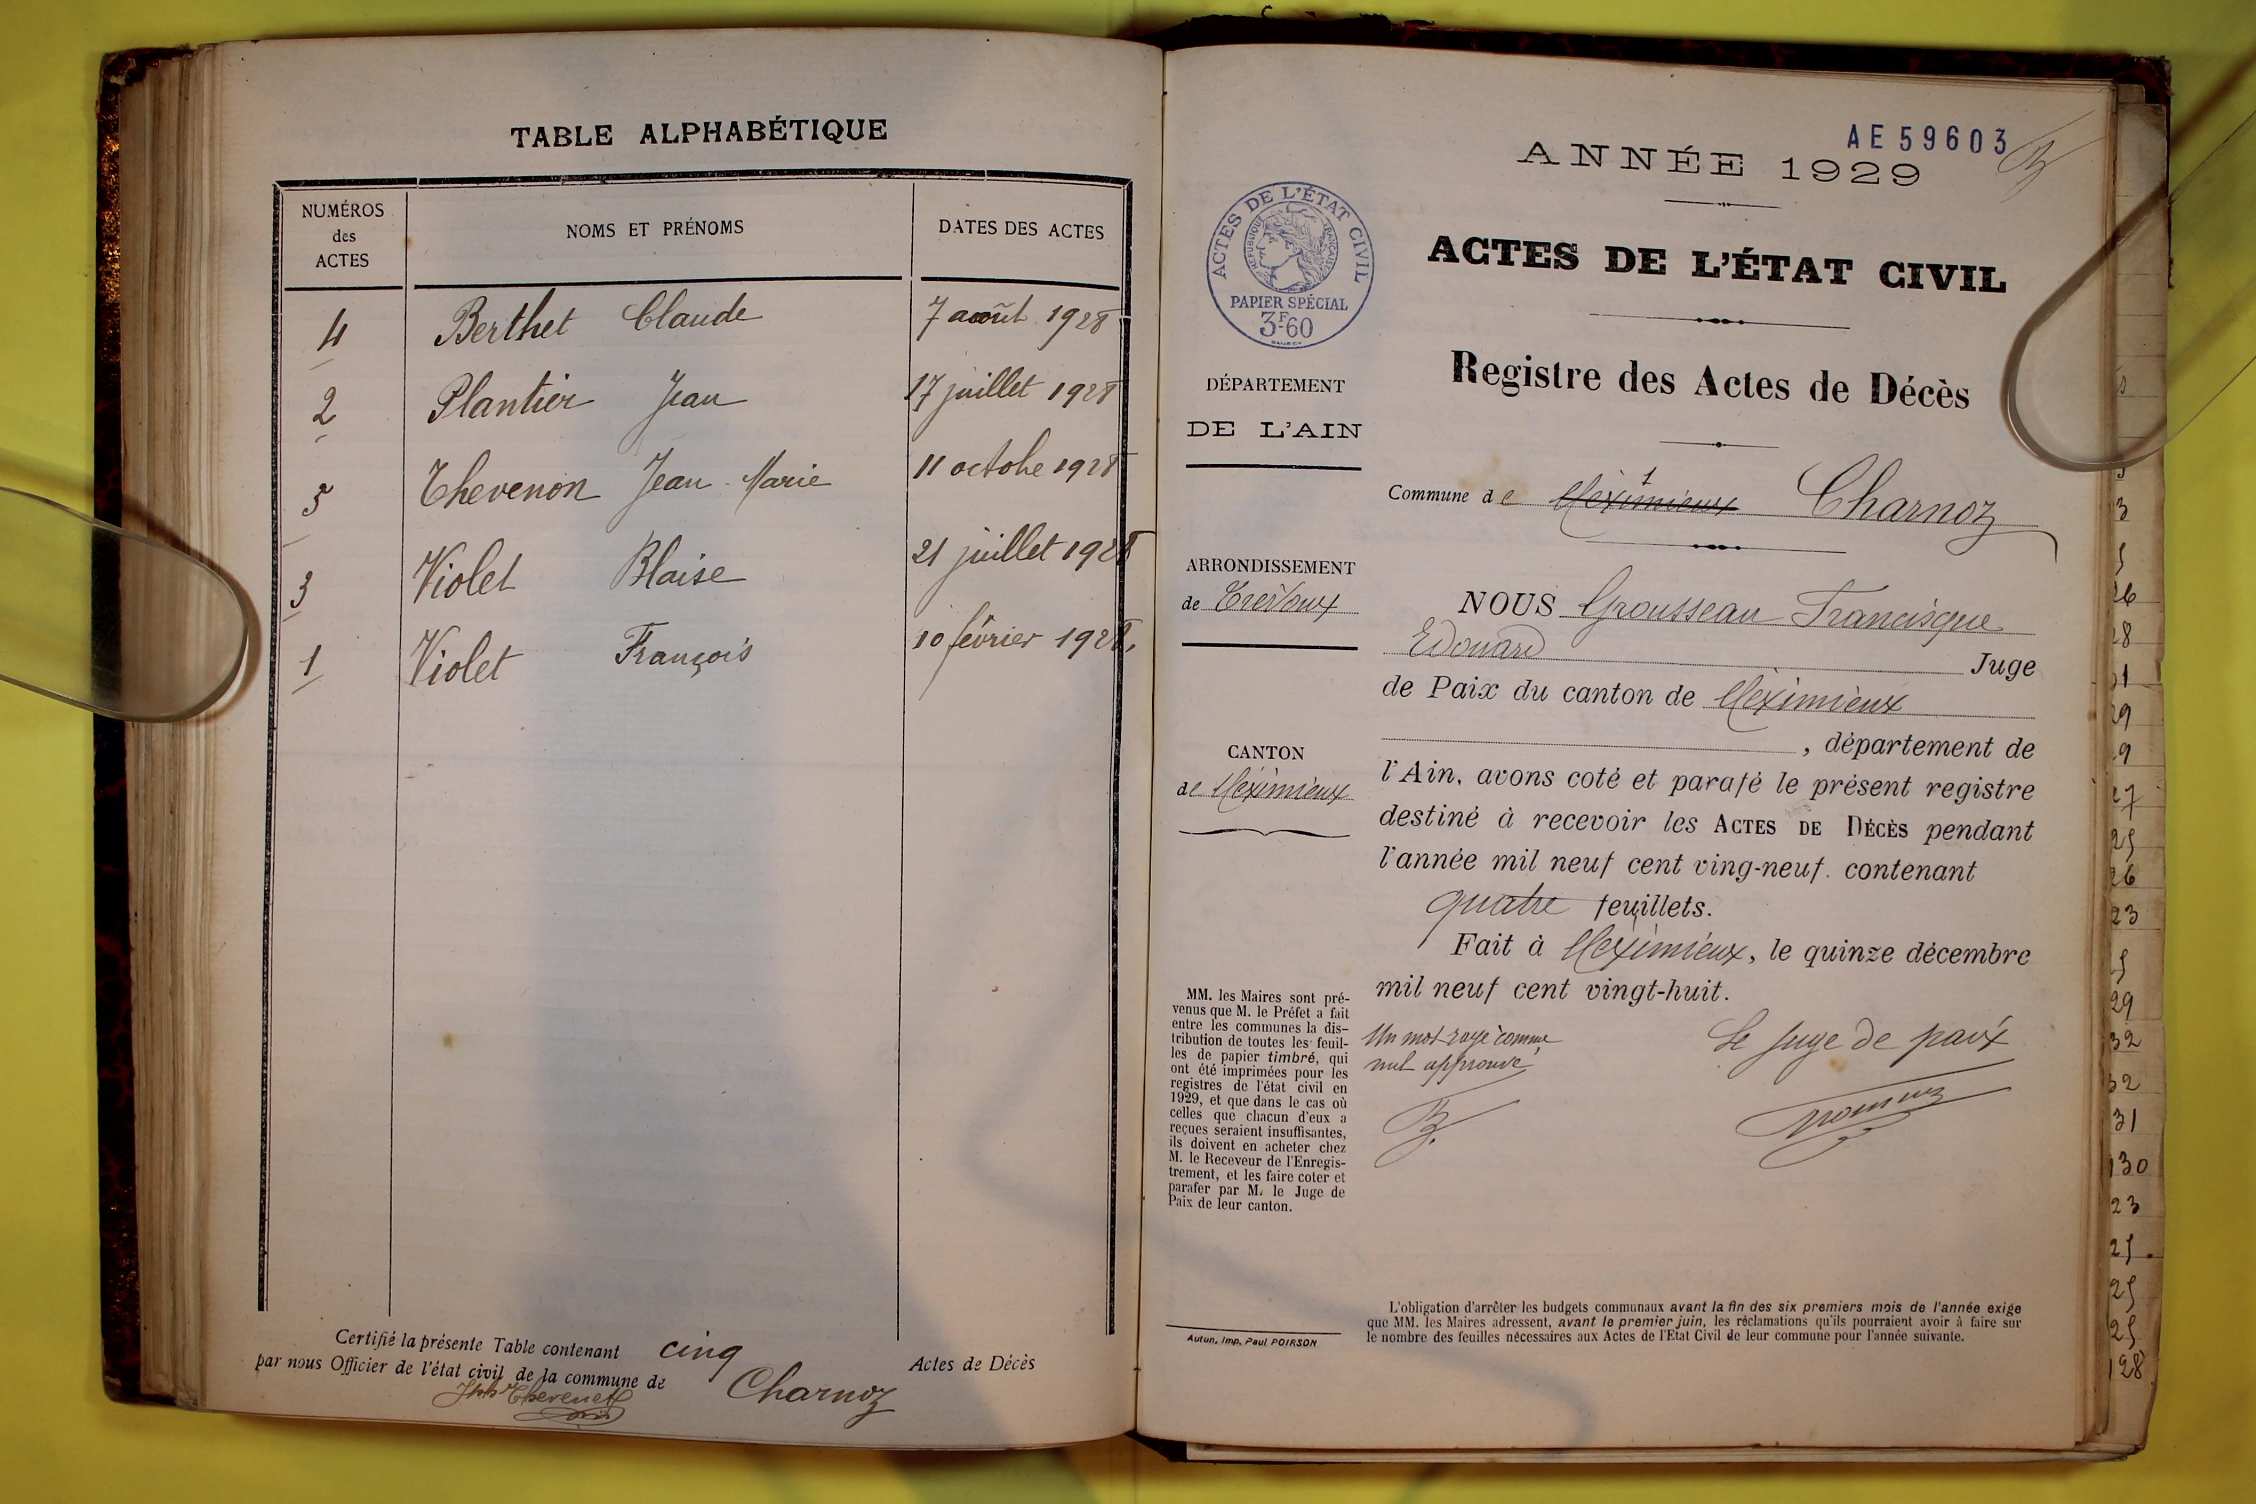 TABLE ALPHABÉTIQUE
NUMÉROS des ACTES NOMS ET PRÉNOMS DATES DES ACTES
4 Berthet Claude 7 août 1928
2 Plantier Jean 17 juillet 1928
5 Thevenon Jean Marie 11 octobre 1928
3 Violet Blaise 21 juillet 1928
1 Violet François 10 février 1928.
Certifié la présente Table contenant cinq Actes de Décès
par nous Officier de l'état civil de la commune de Charnoz
Thevenet
AE 59603
ANNÉE 1929
ACTES DE L'ÉTAT CIVIL
RÉPUBLIQUE FRANÇAISE
PAPIER SPÉCIAL
3F60
ACTES DE L'ÉTAT CIVIL
Registre des Actes de Décès
DÉPARTEMENT
DE L'AIN
Commune de Méximieux Charnoz
ARRONDISSEMENT
de Trévoux
CANTON
de Méximieux
NOUS Grousseau Francisque
Edouard Juge
de Paix du canton de Méximieux
, département de
l'Ain, avons coté et parafé le présent registre
destiné à recevoir les ACTES DE DÉCÈS pendant
l'année mil neuf cent ving-neuf. contenant
quatre feuillets.
Fait à Méximieux, le quinze décembre
mil neuf cent vingt-huit.
Un mot rayé comme
nul approuvé
Le Juge de paix
MM. les Maires sont pré-
venus que M. le Préfet a fait
entre les communes la dis-
tribution de toutes les feuil-
les de papier timbré, qui
ont été imprimées pour les
registres de l'état civil en
1929, et que dans le cas où
celles que chacun d'eux a
reçues seraient insuffisantes,
ils doivent en acheter chez
M. le Receveur de l'Enregis-
trement, et les faire coter et
parafer par M. le Juge de
Paix de leur canton.
Autun, Imp. Paul POIRSON
L'obligation d'arrêter les budgets communaux avant la fin des six premiers mois de l'année exige
que MM. les Maires adressent, avant le premier juin, les réclamations qu'ils pourraient avoir à faire sur
le nombre des feuilles nécessaires aux Actes de l'Etat Civil de leur commune pour l'année suivante.